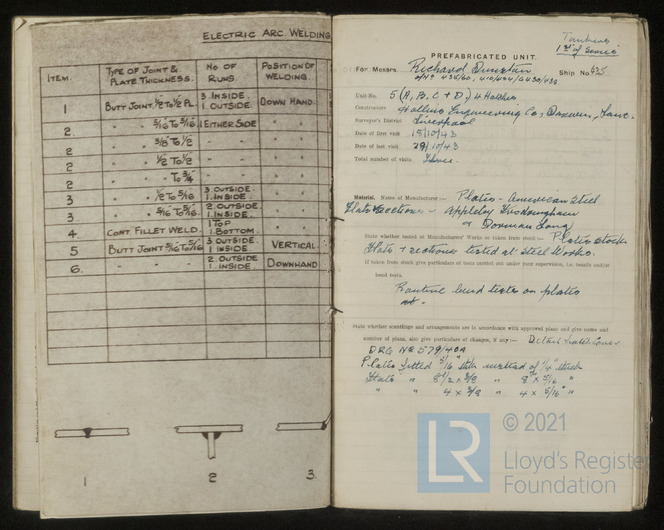 ELECTRIC ARC WELDING
ITEM. TYPE OF JOINT & PLATE THICKNESS. NO OF RUNS. POSITION OF WELDING.
1 BUTT JOINT 1/2 TO 1/2 PL. 3 INSIDE. 1 OUTSIDE. DOWN HAND.
2. " " 5/16 TO 5/16 1 EITHER SIDE " "
2 " " 3/8 TO 1/2 " " " "
2 " " 1/2 TO 1/2 " " " "
2 " " TO 3/4 " " " "
3 " " 1/2 TO 5/16 3 OUTSIDE. 1 INSIDE. " "
3 " " 5/16 TO 5/16 2 OUTSIDE. 1 INSIDE. " "
4 CONT FILLET WELD. 1 TOP 1 BOTTOM. " "
5 BUTT JOINT 5/16 TO 5/16 3 OUTSIDE 1 INSIDE VERTICAL.
6. " " " 2 OUTSIDE 1 INSIDE. DOWNHAND
1 2 3
Tankers
1st of Series
PREFABRICATED UNIT.
For Messrs. Richard Dunstan Ship No. 435
Unit No. 5 (A, B, C + D) 4 Hatches
Constructors Hollins Engineering Co, Darwen, Lanc.
Surveyor's District Liverpool
Date of first visit 18/10/43
Date of last visit 29/10/43
Total number of visits Three.
Material. Name of Manufacturer:— Plates - American Steel
Flats & Sections - Appleby Frodingham
or Dorman Long
State whether tested at Manufacturers' Works or taken from stock:— Plates Stock
Flats + sections tested at Steel Works.
If taken from stock give particulars of tests carried out under your supervision, i.e. tensile and/or
bend tests.
Routine bend tests on plates
State whether scantlings and arrangements are in accordance with approved plans and give name and
number of plans, also give particulars of changes, if any:— Detail Hatch Cover
DRG No 579/40A
Plates fitted 5/16" thk instead of 1/4" thick
Flats " 8 1/2 x 3/8 " 8" x 5/16 "
" " 4 x 3/8 " 4 x 5/16" "
LR
© 2021
Lloyd's Register
Foundation